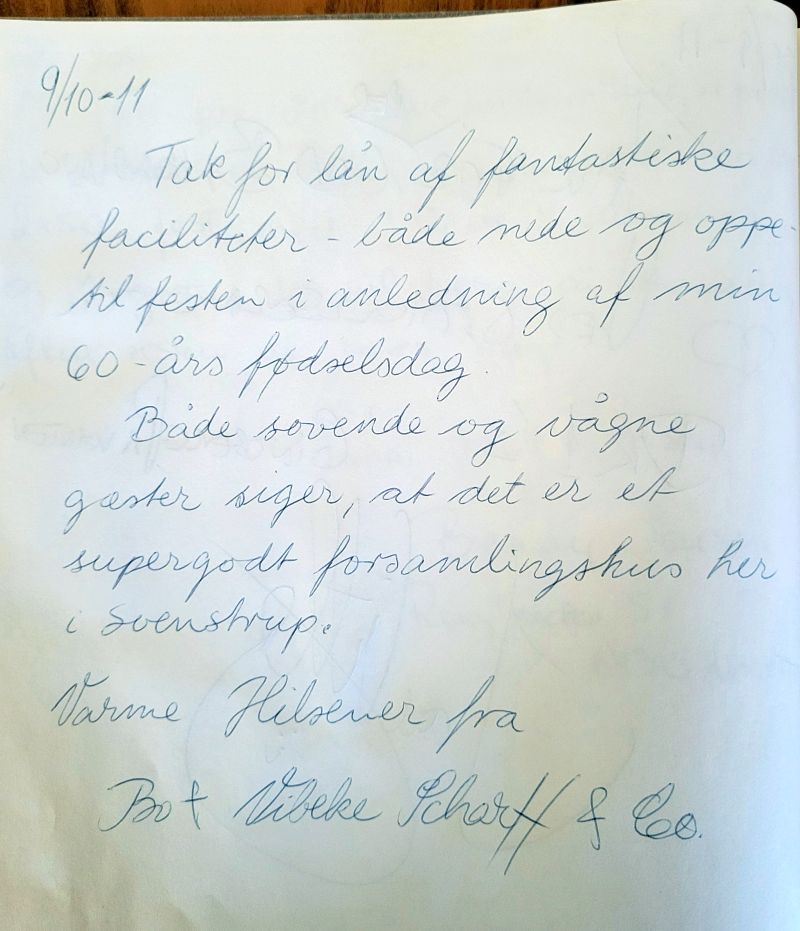 9/10-11
Tak for lån af fantastiske
faciliteter - både nede og oppe-
til festen i anledning af min
60-års fødselsdag.
Både sovende og vågne
gæster siger, at det er et
supergodt forsamlingshus her
i Svenstrup.
Varme Hilsener fra
Bo + Vibeke Scharff & Co.